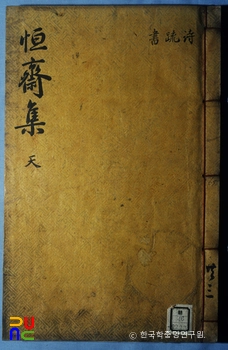 恒齋集
天
詩疏書
共三
© 한국학중앙연구원